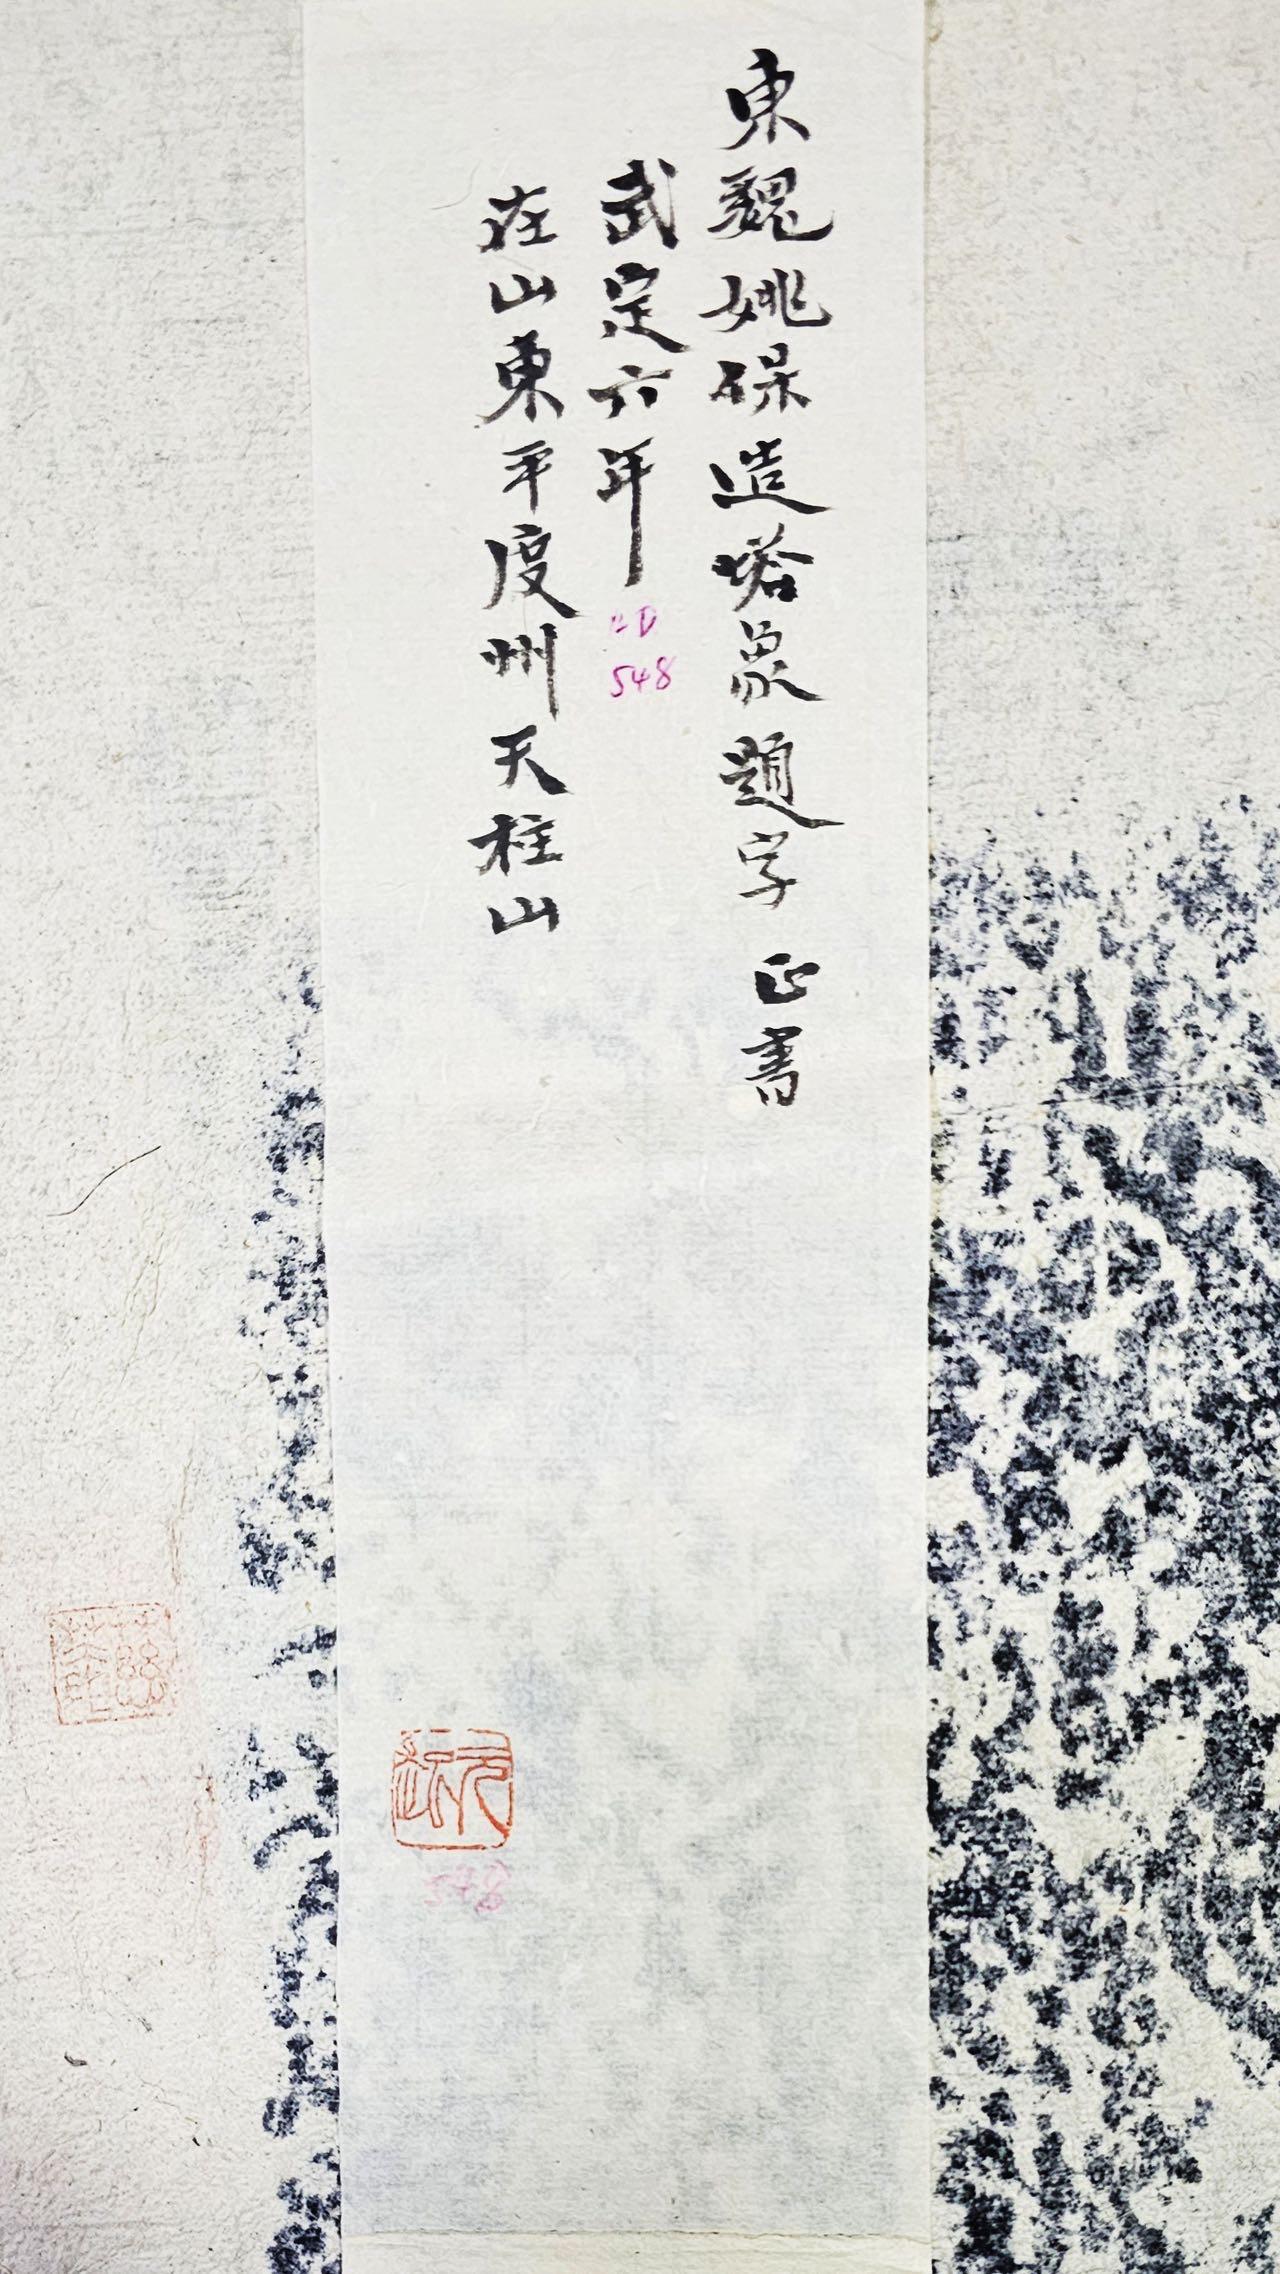 東魏姚保造塔象題字 正書
武定六年
AD
548
在山東平度州天柱山
548